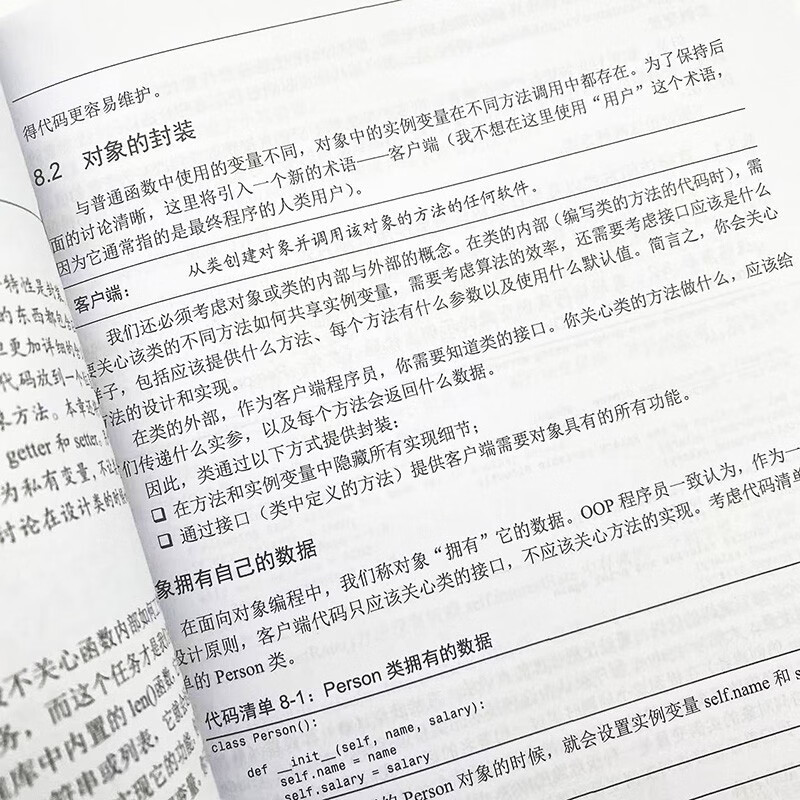 特性是封
的东西都
更加详细的
代码放到一个
方法。本章还
getter 和 setter
为私有变量，不
讨论在设计类的
不关心函数内部如何
务，而这个任务才是
库中内置的 len()函数
符串或列表，它
现它的功能
得代码更容易维护。
8.2 对象的封装
与普通函数中使用的变量不同，对象中的实例变量在不同方法调用中都存在。为了保持后
面的讨论清晰，这里将引入一个新的术语——客户端（我不想在这里使用“用户”这个术语，
因为它通常指的是最终程序的人类用户）。
客户端： 从类创建对象并调用该对象的方法的任何软件。
我们还必须考虑对象或类的内部与外部的概念。在类的内部（编写类的方法的代码时），需
要关心该类的不同方法如何共享实例变量，需要考虑算法的效率，还需要考虑接口应该是什么
样子，包括应该提供什么方法、每个方法有什么参数以及使用什么默认值。简言之，你会关心
方法的设计和实现。
在类的外部，作为客户端程序员，你需要知道类的接口。你关心类的方法做什么，应该给
们传递什么实参，以及每个方法会返回什么数据。
因此，类通过以下方式提供封装：
❑ 在方法和实例变量中隐藏所有实现细节；
❑ 通过接口（类中定义的方法）提供客户端需要对象具有的所有功能。
象拥有自己的数据
在面向对象编程中，我们称对象“拥有”它的数据。OOP 程序员一致认为，作为一
设计原则，客户端代码只应该关心类的接口，不应该关心方法的实现。考虑代码清单
单的 Person 类。
代码清单 8-1：Person 类拥有的数据
class Person():
def __init__(self, name, salary):
self.name = name
self.salary = salary
的 Person 对象的时候，就会设置实例变量 self.name 和 s